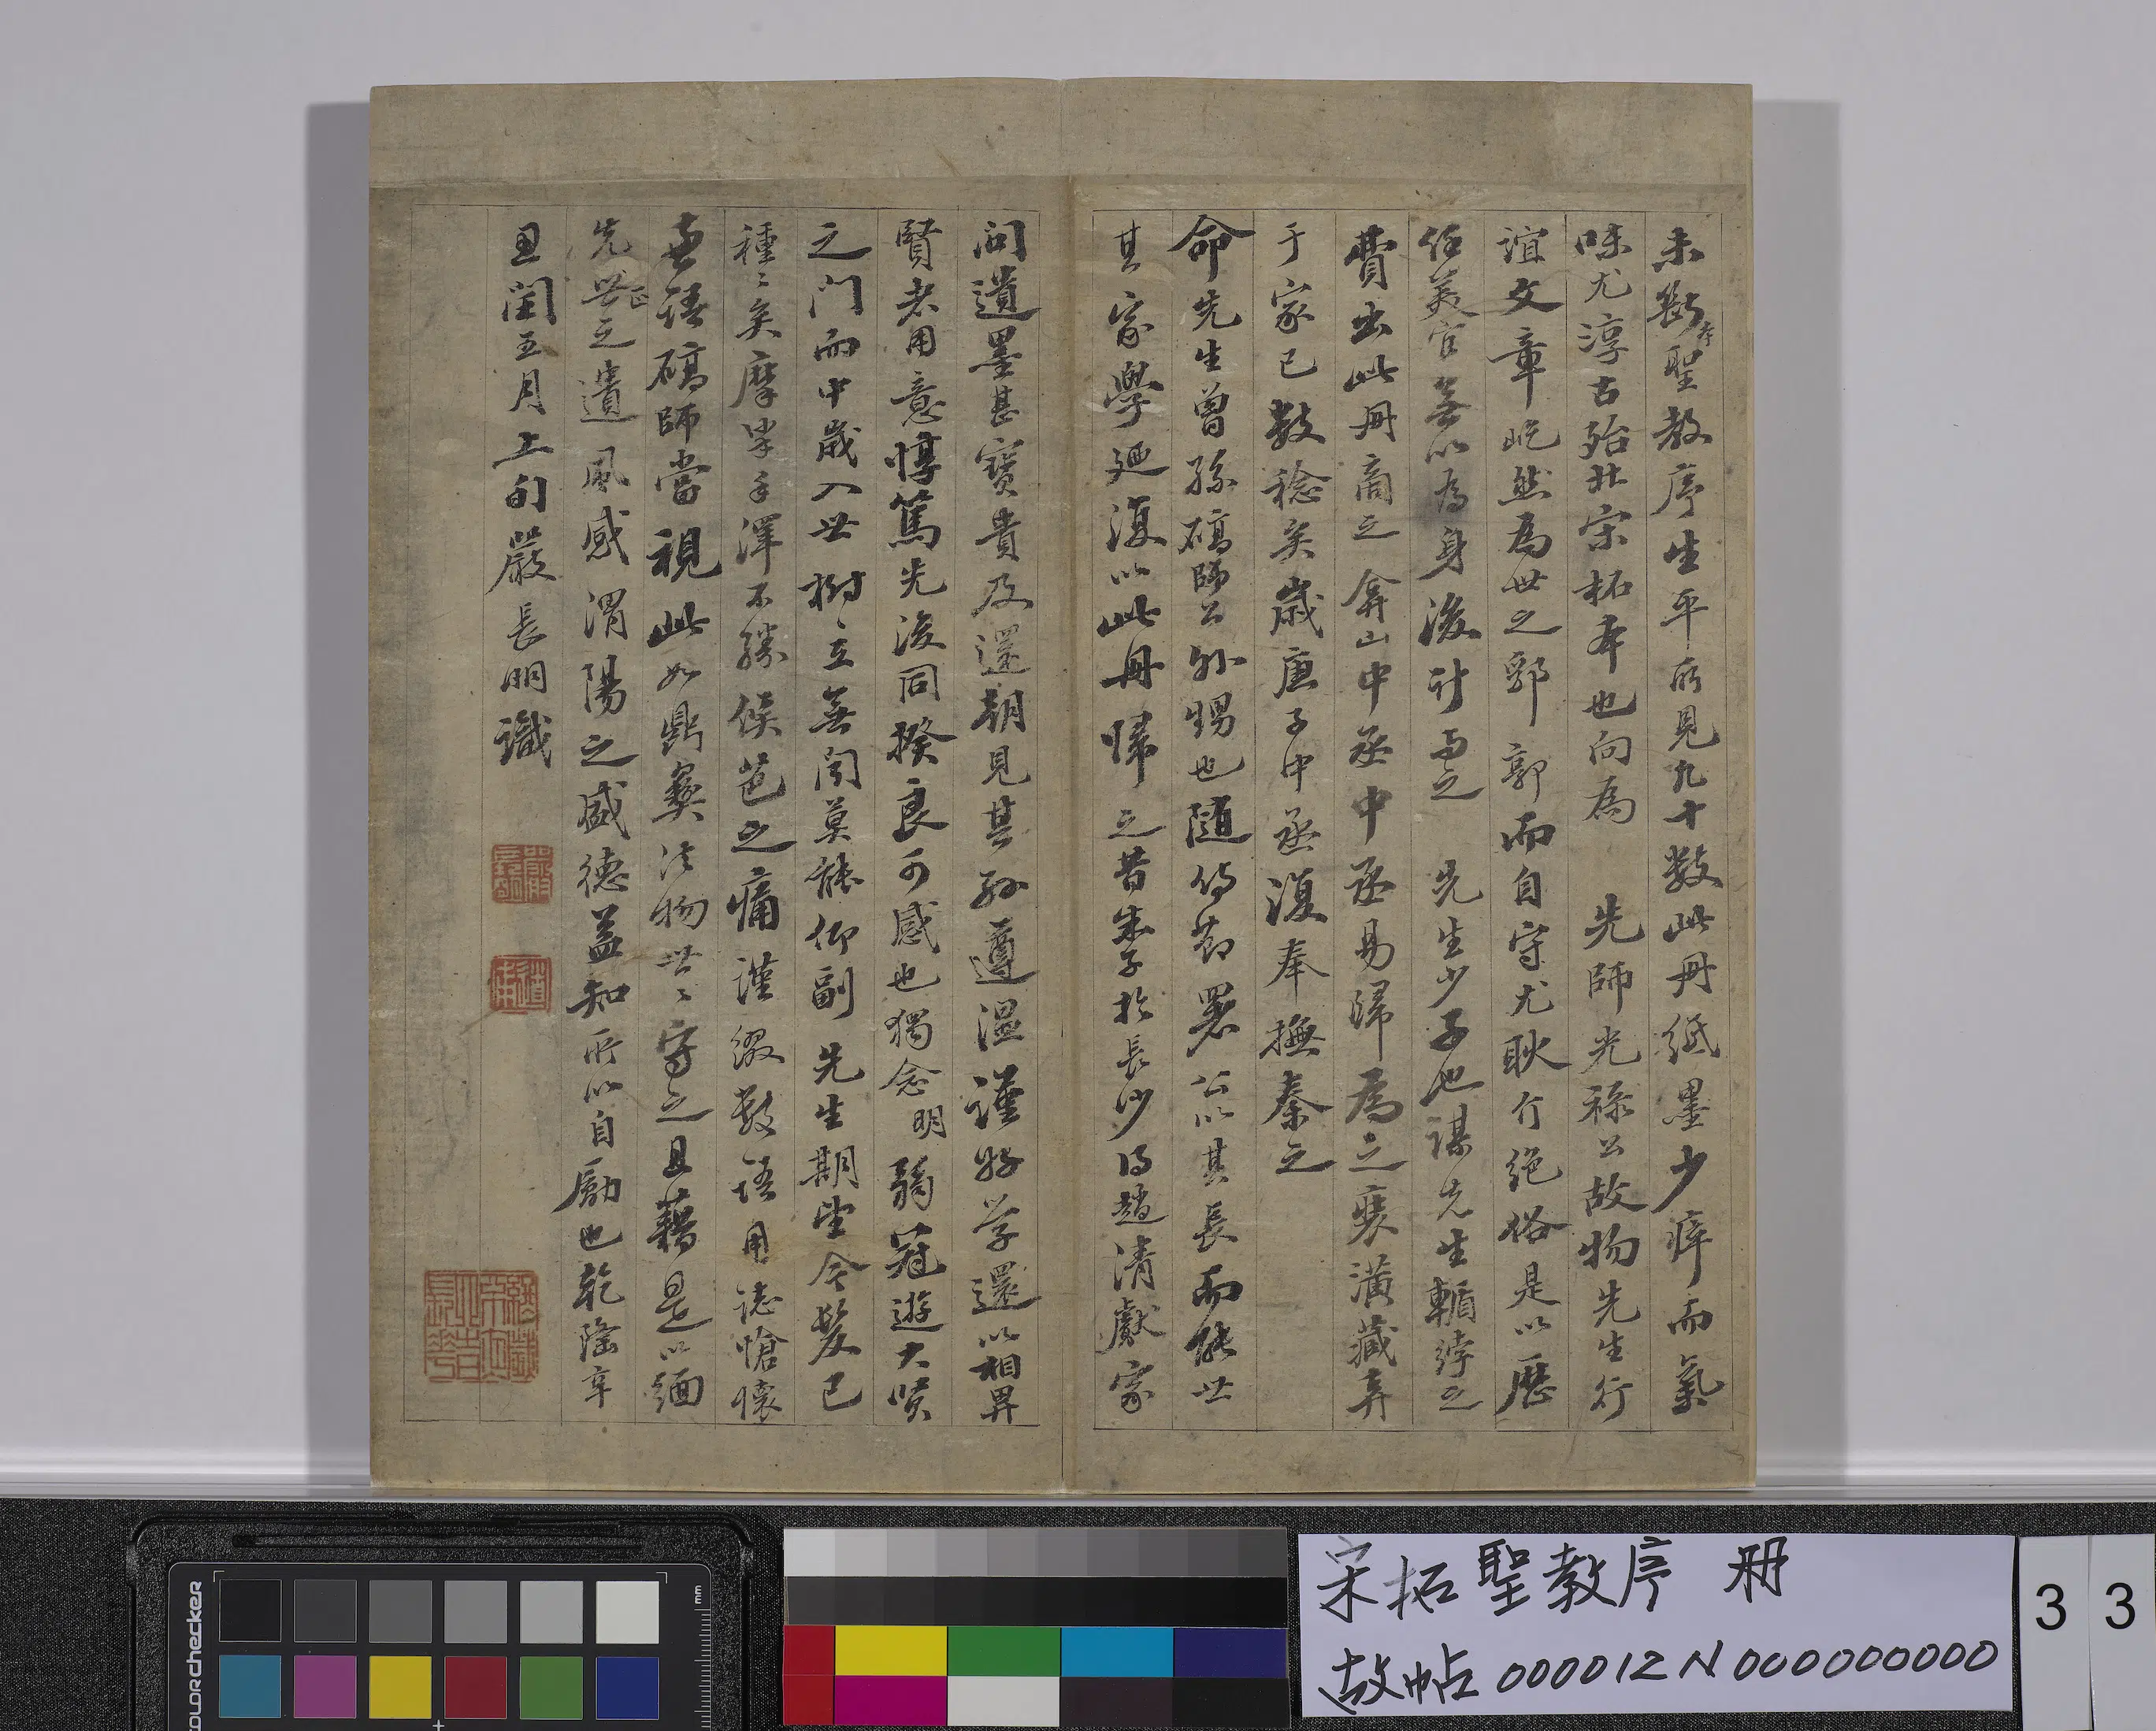 未斷本聖教序生平所見九十數此冊紙墨少瘁而氣
味尤淳古殆北宋拓本也向為 先師光祿公故物先生行
誼文章屹然為世之郛郭而自守尤耿介絕俗是以歷
任美官無以為身後計 先生少子也謀先生輀綍之
費出此冊商之弇山中丞中丞易歸為之裝潢藏弆
于家已數稔矣歲庚子中丞復奉撫秦之
命先生曾孫碻師公外甥也隨侍節署公以其長而能世
其家學迺復以此冊歸之昔朱子於長沙得趙清獻家
問遺墨甚寶貴及還朝見其孫遵溫謹好學還以相畀
賢者用意惇篤先後同揆良可感也獨念明弱冠遊大賢
之門而中歲入世樹立無聞莫能仰副先生期望今髮已
種種矣摩挲手澤不勝侯芭之痛謹綴數語用誌愴懷
並語碻師當視此如鼎彝法物世世守之且藉是以緬
先世正之遺風感渭陽之盛德益知所以自勵也乾隆辛
丑閏五月上旬嚴長明識
嚴長明
道甫
宋拓聖教序 冊
故帖000012N000000000
3 3
colorchecker
mm